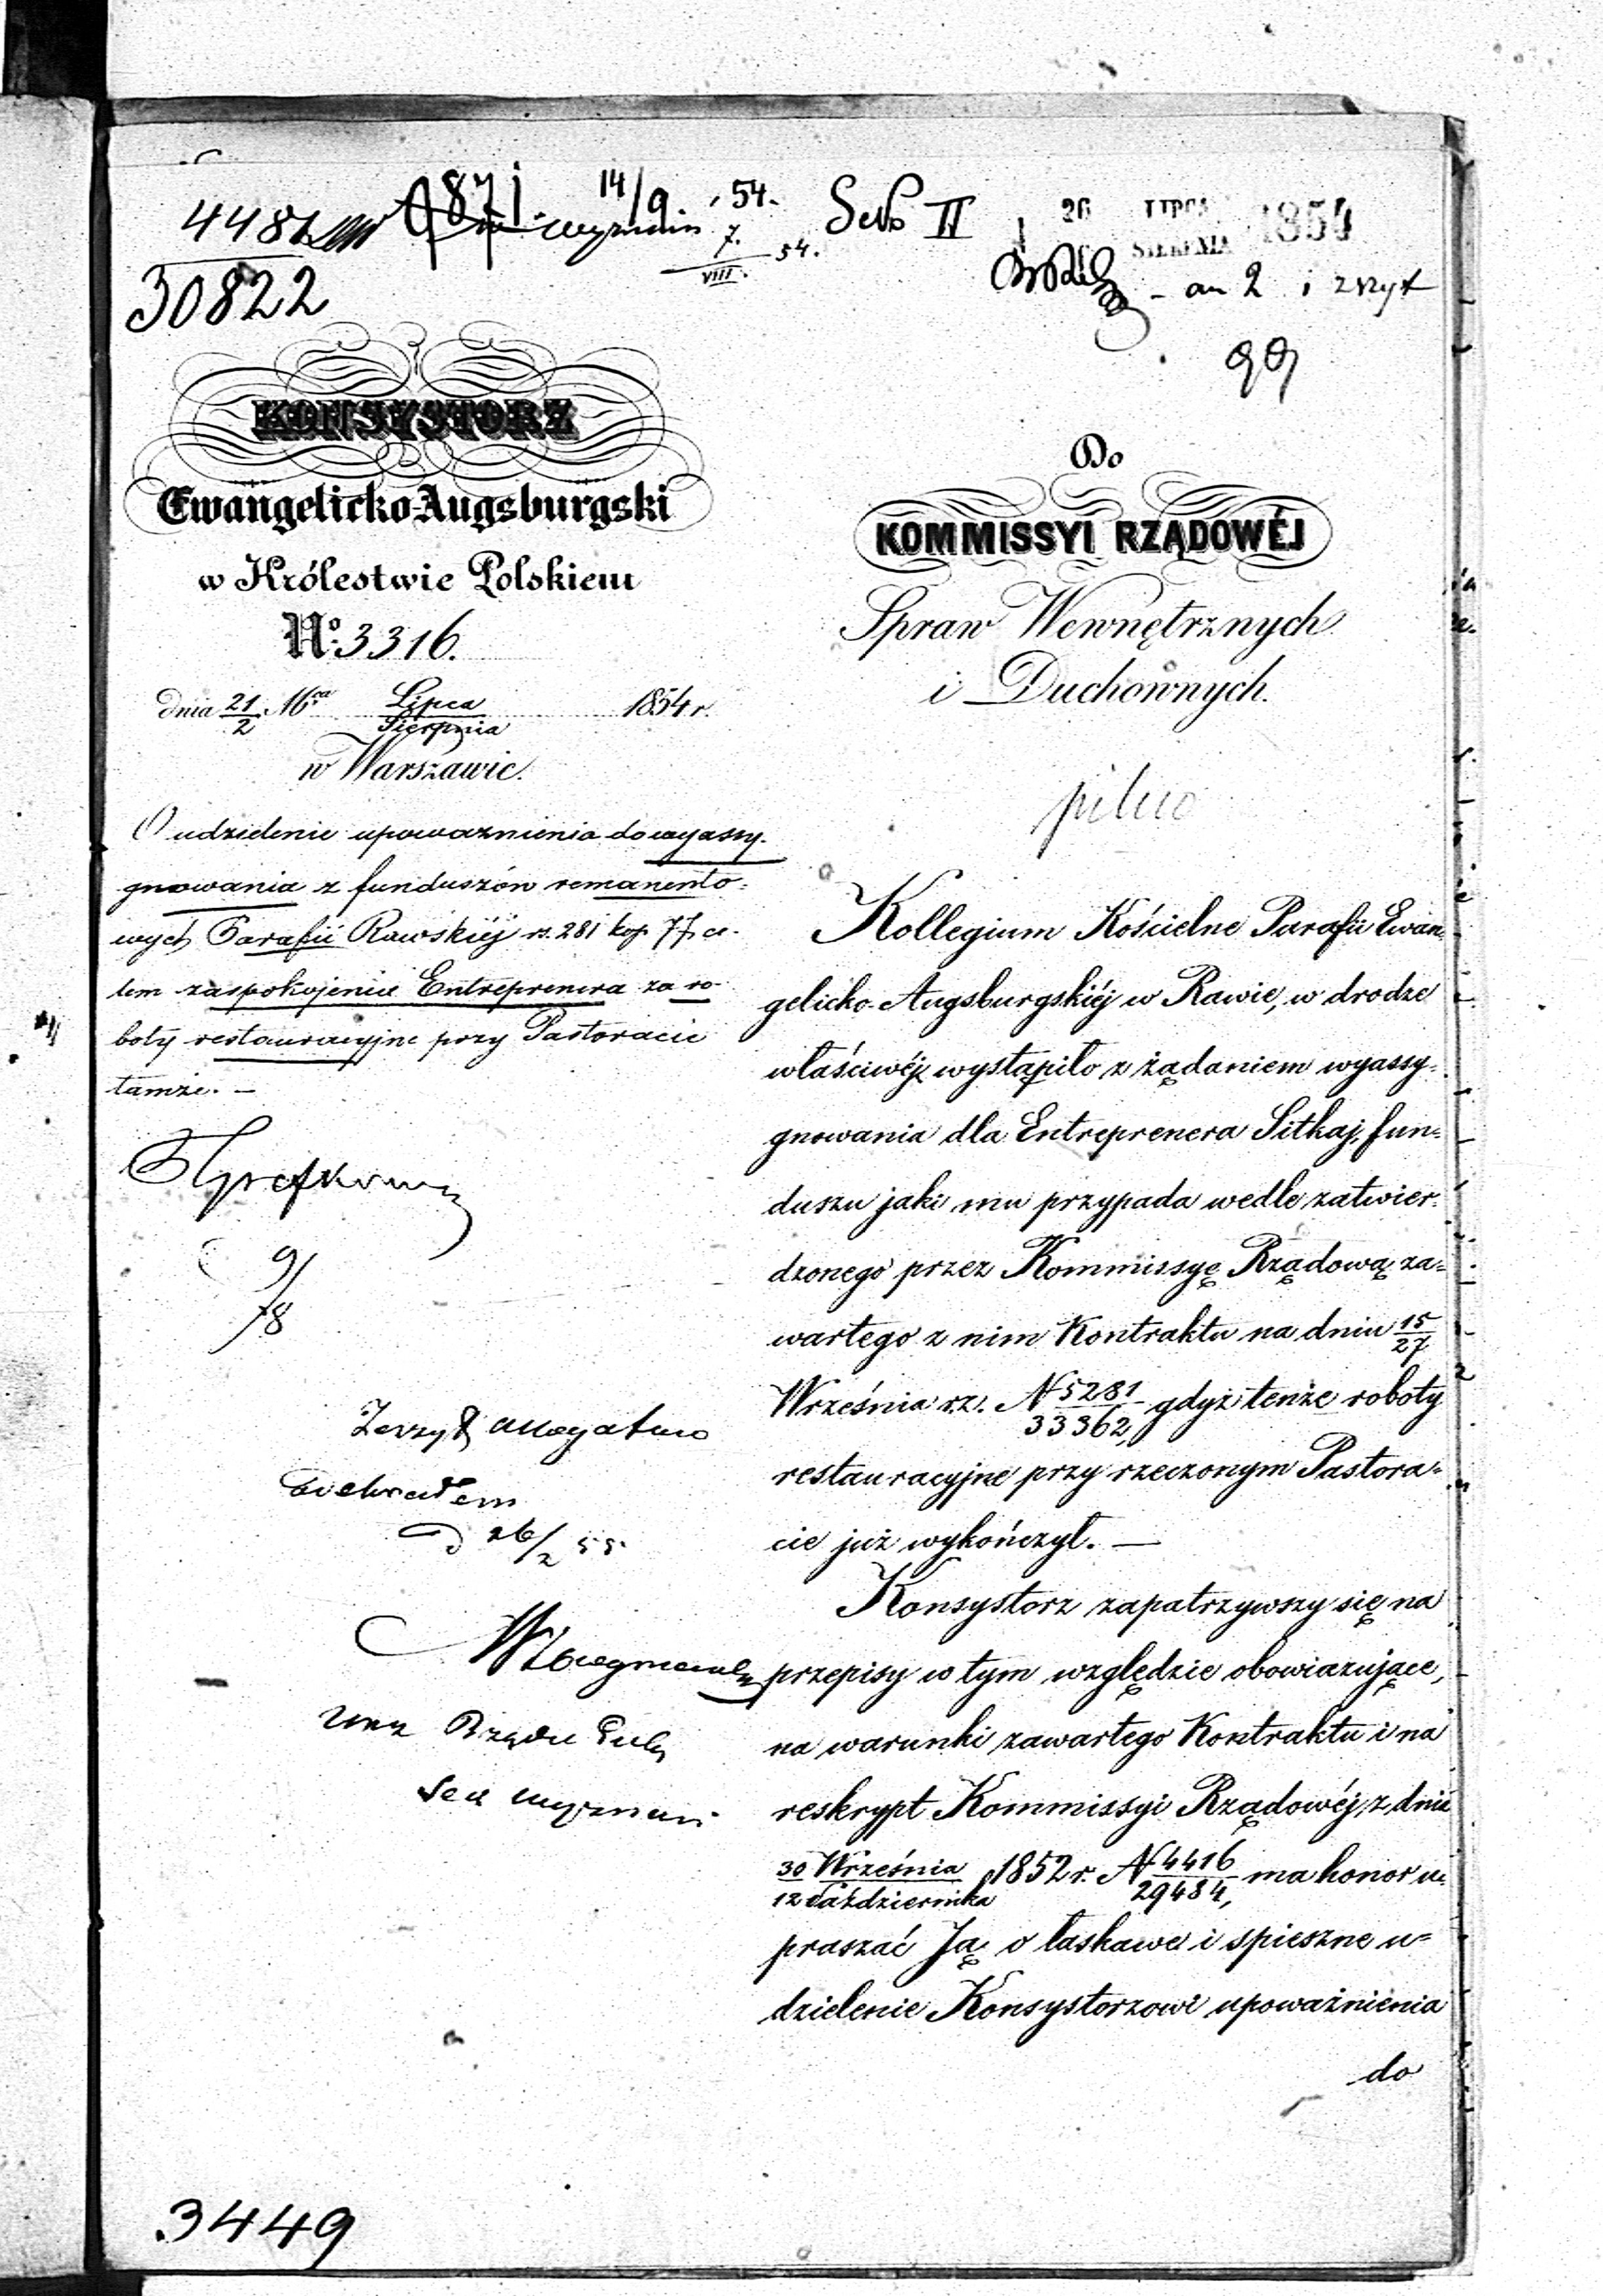 4487
30822
14/9 54.
7. 54.
VIII.
Sekr II
26 LIPCA 1854
SIERPNIA
an 2 i zszyt
99
KONSYSTORZ
Ewangelicko-Augsburgski
w Królestwie Polskiem
No: 3316.
dnia 21/2 Mca Lipca/Sierpnia 1854 r.
w Warszawie.
O udzielenie upoważnienia do wyassy-
gnowania z funduszów remanento-
wych Parafii Rawskiéj rs. 281 kop 77, ce-
lem zaspokojenia Entreprenera za ro-
boty restauracyjne przy Pastoracie
tamże. –
9/8
Zeszyt allegatów
odebrałem
d 26/2 55
Urz Rządu Gub
Do
KOMMISSYI RZĄDOWÉJ
Spraw Wewnętrznych
i Duchownych.
pilno
Kollegium Kościelne Parafii Ewan-
gelicko-Augsburgskiéj w Rawie, w drodze
właściwéj wystąpiło z żądaniem wyassy-
gnowania dla Entreprenera Sitkaj, fun-
duszu jaki mu przypada wedle zatwier-
dzonego przez Kommissyę Rządową za-
wartego z nim Kontraktu na dniu 15/27
Września r.z. N 5281/33362, gdyż tenże roboty
restauracyjne przy rzeczonym Pastora-
cie już wykończył. —
Konsystorz zapatrzywszy się na
przepisy w tym względzie obowiązujące,
na warunki zawartego Kontraktu i na
reskrypt Kommissyi Rządowéj z dnia
30 Września/12 Października 1852 r. N 4416/29484, ma honor u-
praszać Ją o łaskawe i spieszne u-
dzielenie Konsystorzowi upoważnienia
do
3449